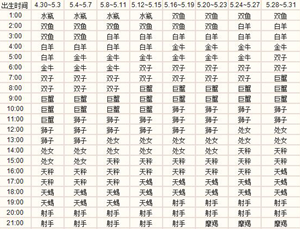 出生时间 4.30~5.3 5.4~5.7 5.8~5.11 5.12~5.15 5.16~5.19 5.20~5.23 5.24~5.27 5.28~5.31
1:00 水瓶 水瓶 水瓶 水瓶 双鱼 双鱼 双鱼 双鱼
2:00 双鱼 双鱼 双鱼 双鱼 双鱼 白羊 白羊 白羊
3:00 双鱼 白羊 白羊 白羊 白羊 白羊 白羊 金牛
4:00 白羊 白羊 白羊 金牛 金牛 金牛 金牛 金牛
5:00 金牛 金牛 金牛 金牛 金牛 双子 双子 双子
6:00 金牛 金牛 双子 双子 双子 双子 双子 双子
7:00 双子 双子 双子 双子 双子 双子 双子 巨蟹
8:00 双子 双子 双子 巨蟹 巨蟹 巨蟹 巨蟹 巨蟹
9:00 巨蟹 巨蟹 巨蟹 巨蟹 巨蟹 巨蟹 巨蟹 巨蟹
10:00 巨蟹 巨蟹 巨蟹 巨蟹 狮子 狮子 狮子 狮子
11:00 巨蟹 狮子 狮子 狮子 狮子 狮子 狮子 狮子
12:00 狮子 狮子 狮子 狮子 狮子 狮子 狮子 狮子
13:00 狮子 狮子 狮子 狮子 狮子 处女 处女 处女
14:00 处女 处女 处女 处女 处女 处女 处女 处女
15:00 处女 处女 处女 天秤 天秤 天秤 天秤 天秤
16:00 天秤 天秤 天秤 天秤 天秤 天秤 天秤 天秤
17:00 天秤 天秤 天秤 天秤 天蝎 天蝎 天蝎 天蝎
18:00 天蝎 天蝎 天蝎 天蝎 天蝎 天蝎 天蝎 天蝎
19:00 天蝎 天蝎 天蝎 天蝎 天蝎 射手 射手 射手
20:00 射手 射手 射手 射手 射手 射手 射手 射手
21:00 射手 射手 射手 射手 射手 射手 摩羯 摩羯